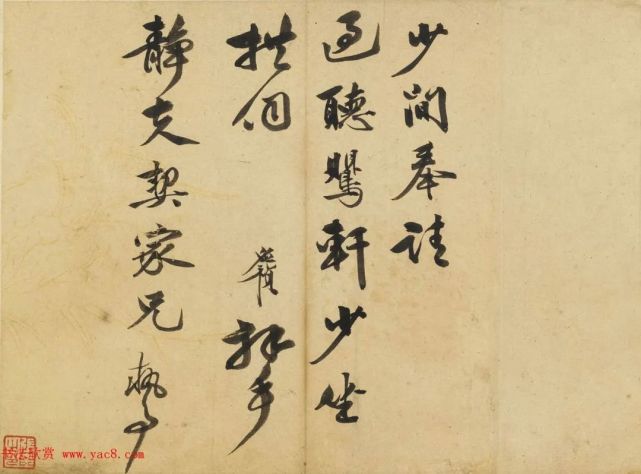 少間奉請
過聽鸎軒少坐
拱伺 應禎拜手
靜契家兄 執事
书法欣赏 www.yac8.com